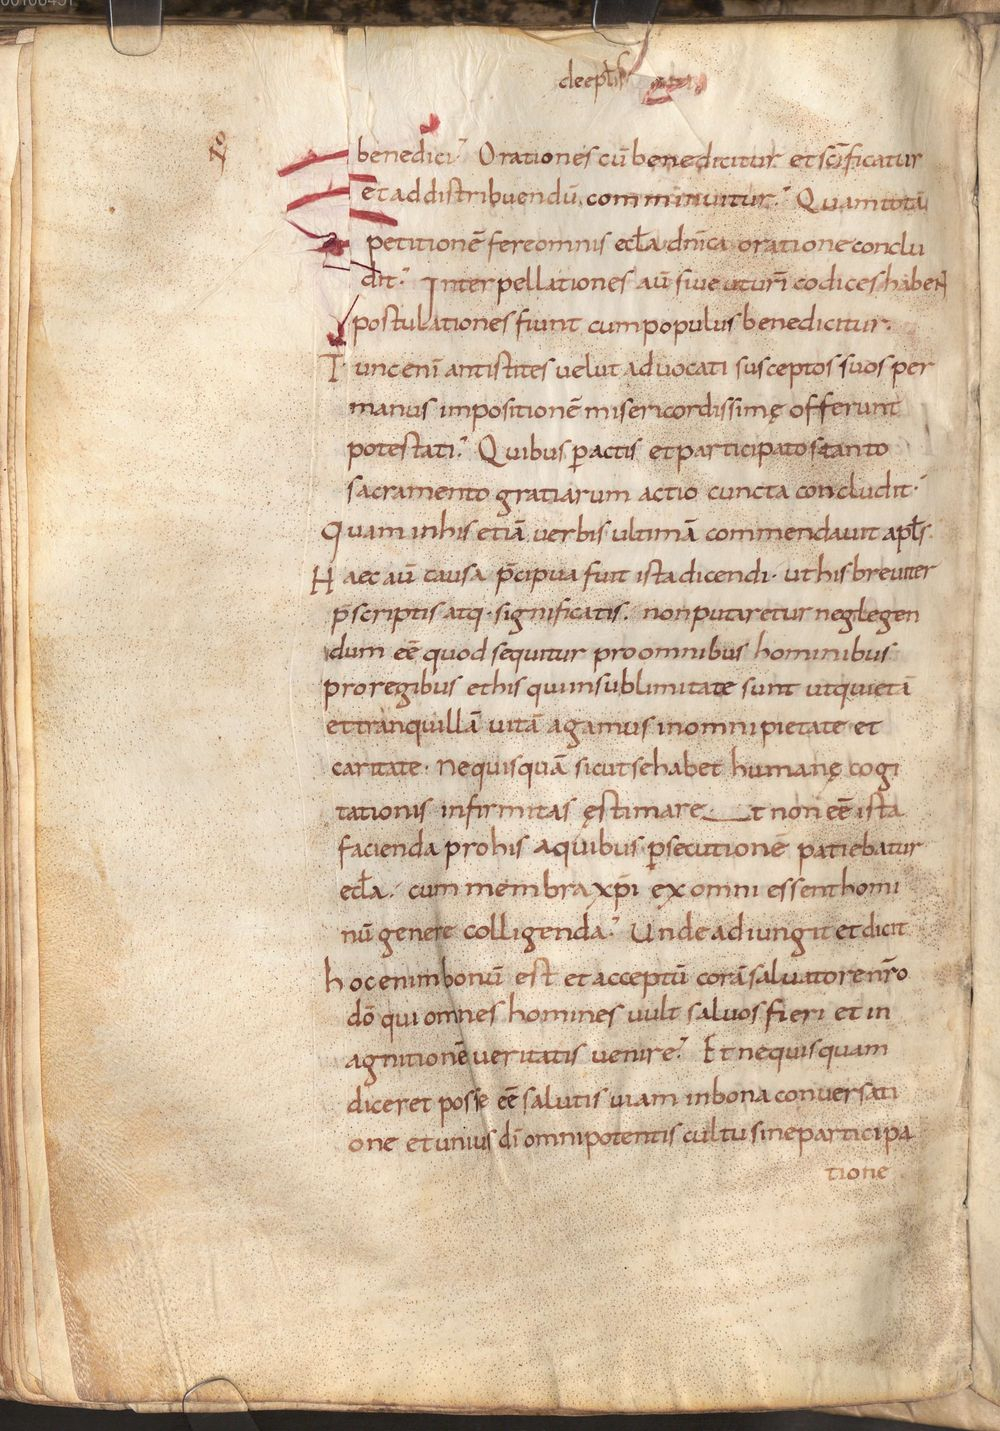 deeptłs
benedici? Orationes cū benedicitur et scīficatur
et ad distribuendū comminuitur? Quam totā
petitionē fere omnis ecła dn̄ica oratione conclu
dit? Interpellationes aū siue ut urī codices habent
postulationes fiunt cum populus benedicitur.
Tunc enī antistites uelut aduocati susceptos suos per
manus impositionē misericordissimę offerunt
potestati? Quibus ꝑactis et participato tanto
sacramento gratiarum actio cuncta concludit.
Quam in his etiā uerbis ultimā commendauit apłs.
Haec aū causa p̄cipua fuit ista dicendi. ut his breuiter
p̄scriptis atq. significatis. non putaretur neglegen
dum eē quod sequitur pro omnibus hominibus
pro regibus et his qui in sublimitate sunt ut quietā
et tranquillā uitā agamus in omni pietate et
caritate. ne quisquā sicut se habet humanę cogi
tationis infirmitas ęstimaret non eē ista
facienda pro his a quibus ꝑsecutionē patiebatur
ecła. cum membra xp̄i ex omni essent homi
nū genere colligenda? Unde adiungit et dicit
hoc enim bonū est et acceptū corā saluatore nr̄o
dō qui omnes homines uult saluos fieri et in
agnitionē ueritatis uenire? Et ne quisquam
diceret posse eē salutis uiam in bona conuersati
one et unius dī omnipotentis cultu sine participa
tione